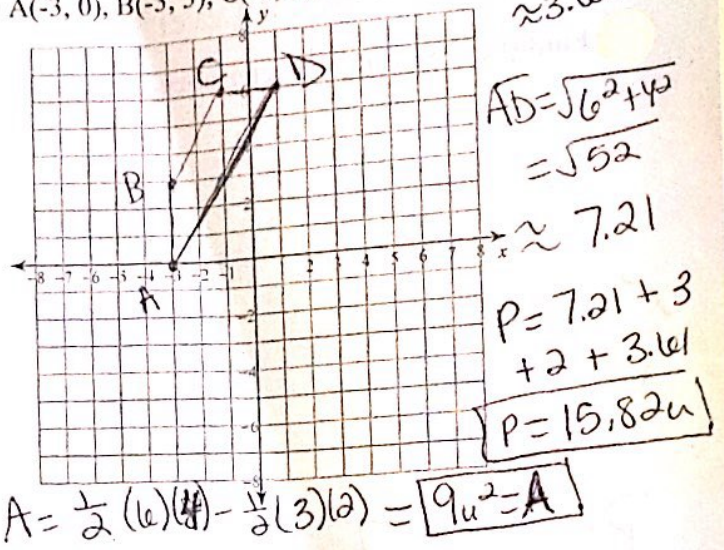 A(-3, 0), B(-3, 3),
≈3.6
y
8
C
D
B
A
-8 -7 -6 -5 -4 -3 -2 -1
2 3 4 5 6 7 8 x
2
-2
-4
-6
-8
AD=√6²+4²
=√52
≈ 7.21
P= 7.21 + 3
+2 + 3.61
P= 15.82u
A= 1/2 (6)(4) - 1/2 (3)(2) = 9u²=A